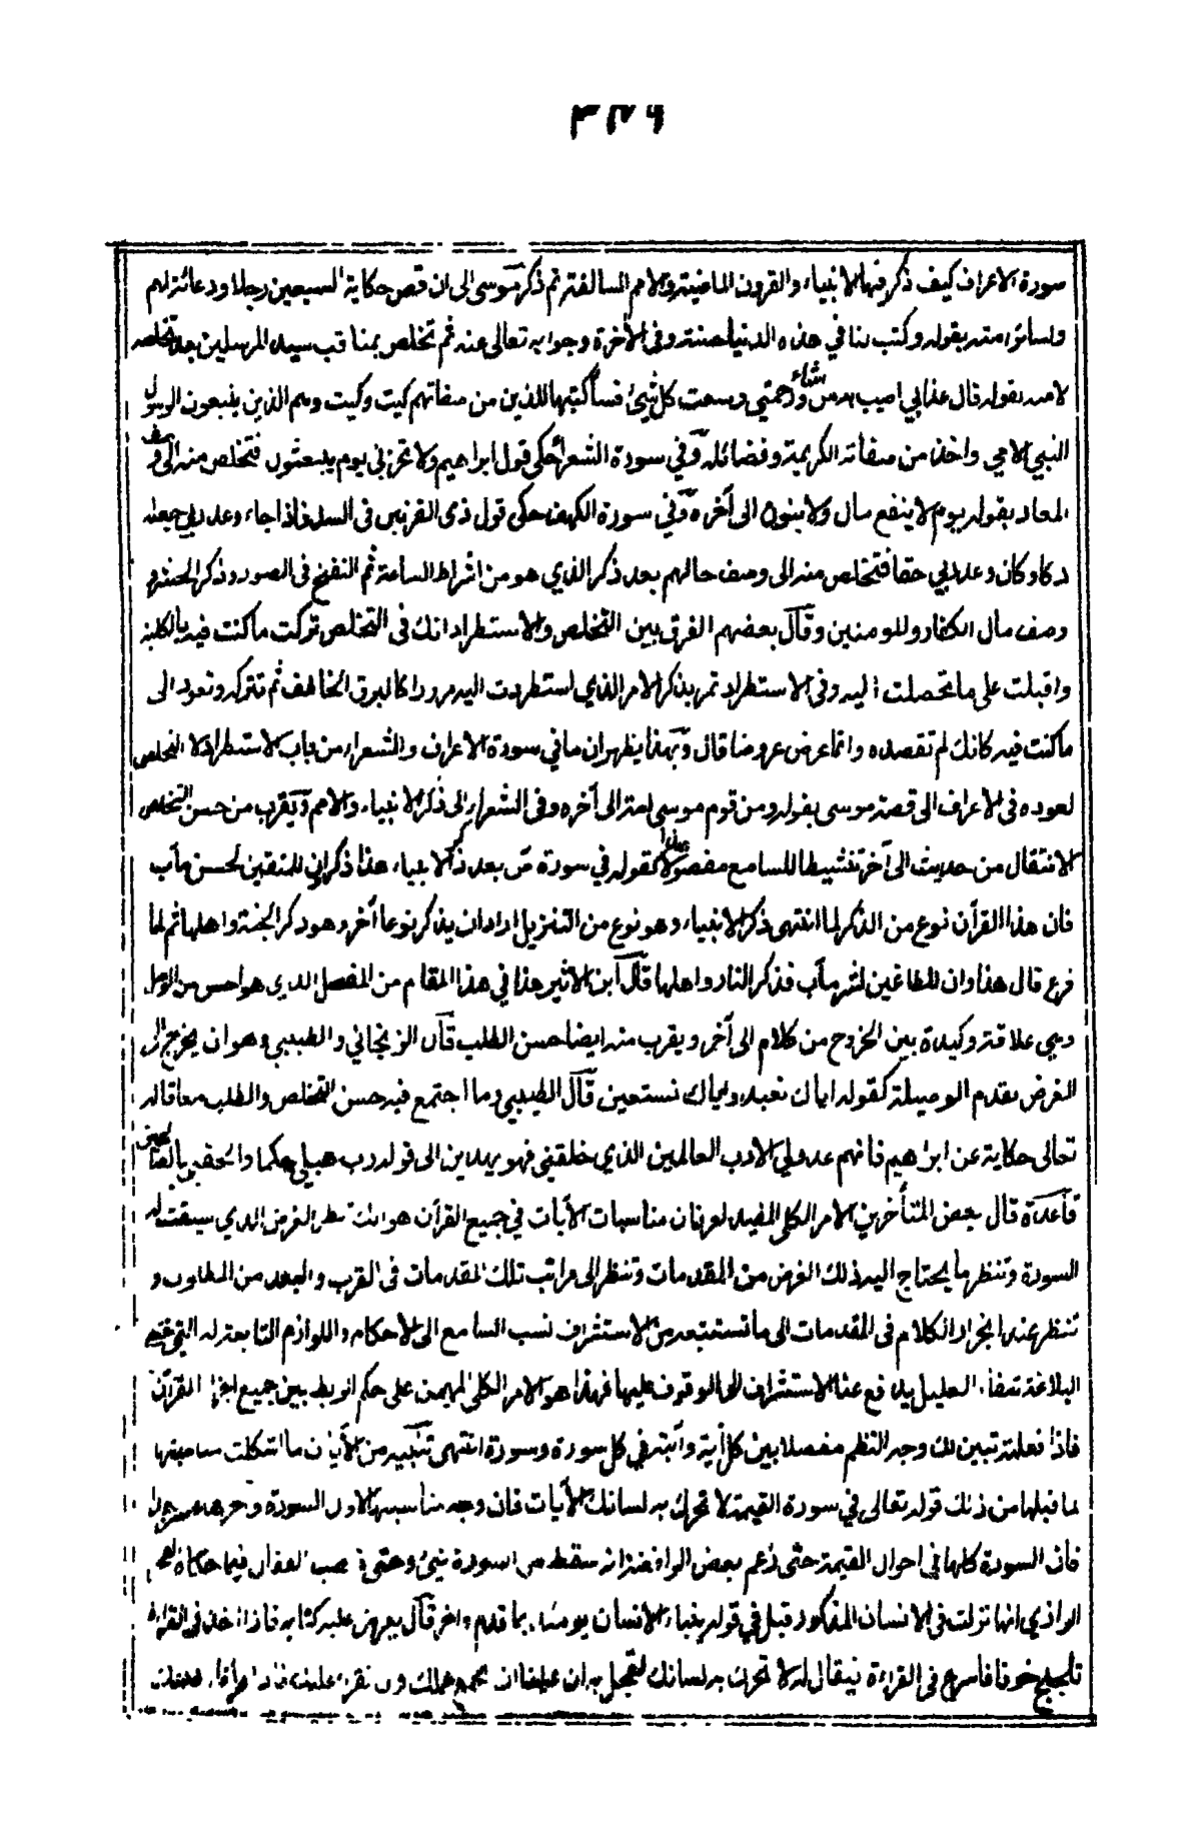 ٣٧٦
سورة الاعراف كيف ذكر فيها الانبياء والقرون الماضية والامم السالفة ثم ذكر موسى الى ان قص حكاية السبعين رجلا ودعائه لهم
ولسائر امته بقوله وكتب لنا في هذه الدنيا حسنة وفى الآخرة وجوابه تعالى عنه ثم تخلص بمناقب سيد المرسلين بعد تخلصه
لامته بقوله قال عذابي اصيب به من اشاء ورحمتي وسعت كل شئ فسأكتبها للذين من صفاتهم كيت وكيت وهم الذين يتبعون الرسول
النبي الامي واخذ من صفاته الكريمة وفضائله وفي سورة الشعراء حكى قول ابراهيم ولا تخزني يوم يبعثون فتخلص منه الى وصف
المعاد بقوله يوم لا ينفع مال ولا بنون الى آخره وفي سورة الكهف حكى قول ذى القرنين فى السد فاذا جاء وعد ربي جعله
دكا وكان وعد ربي حقا فتخلص منه الى وصف حالهم بعد ذكر الذي هو من اشراط الساعة ثم النفخ فى الصور وذكر الحشر و
وصف مال الكفار وللمومنين وقال بعضهم الفرق بين التخلص والاستطراد انك فى التخلص تركت ما كنت فيه بالكلية
واقبلت على ما تخصلت اليه وفى الاستطراد تمر بذكر الامر الذي استطردت اليه مرورا كالبرق الخاطف ثم تتركه وتعود الى
ما كنت فيه كانك لم تقصده وانما عرض عروضا قال وبهذا يظهر ان ما في سورة الاعراف والشعراء من باب الاستطراد لا التخلص
لعوده فى الاعراف الى قصة موسى بقوله ومن قوم موسى امة الى آخره وفى الشعراء الى ذكر الانبياء والامم ويقرب من حسن التخلص
الانتقال من حديث الى آخر تنشيطا للسامع مفصولا بهذا كقوله في سورة ص بعد ذكر الانبياء هذا ذكر وان للمتقين لحسن مآب
فان هذا القرآن نوع من الذكر لما انتهى ذكر الانبياء وهو نوع من التنزيل اراد ان يذكر نوعا آخر وهو ذكر الجنة واهلها ثم لما
فرغ قال هذا وان للطاغين لشر مآب فذكر النار واهلها قال ابن الاثير هذا في هذا المقام من الفصل الذي هو احسن من الوصل
وهي علاقة وكيدة بين الخروج من كلام الى آخر ويقرب منه ايضا حسن الطلب قال الزنجاني والطيبي وهو ان يخرج الى
الغرض بتقدم الوسيلة كقوله اياك نعبد واياك نستعين قال الطيبي وما اجتمع فيه حسن التخلص والطلب معا قاله
تعالى حكاية عن ابراهيم فانهم عدو لي الا رب العالمين الذي خلقني فهو يهدين الى قوله رب هب لي حكما والحقني بالصالحين
قاعدة قال بعض المتأخرين الامر الكلى المفيد لعرفان مناسبات الآيات في جميع القرآن هو انك تنظر الغرض الذي سيقت له
السورة وتنظر ما يحتاج اليه ذلك الغرض من المقدمات وتنظر الى مراتب تلك المقدمات فى القرب والبعد من المطلوب و
تنظر عند انجرار الكلام فى المقدمات الى ما تستتبعه من الاستشراف نسب السامع الى الاحكام واللوازم التابعة له التي تقتضي
البلاغة شفاء العليل يدفع عنا الاستشراف الى الوقوف عليها فهذا هو الامر الكلى المهيمن على حكم الربط بين جميع اجزاء القرآن
فاذا فعلته تبين لك وجه النظم مفصلا بين كل آية وآية في كل سورة وسورة انتهى تنبيه من الآيات ما اشكلت مناسبتها
لما قبلها من ذلك قوله تعالى في سورة القيمة لا تحرك به لسانك الآيات فان وجه مناسبتها لاول السورة وآخرها عسر جدا
فان السورة كلها في احوال القيمة حتى زعم بعض الرافضة انه سقط من السورة شئ وحتى ذهب القفال فيما حكاه الفخر
الرازي انها نزلت فى الانسان المذكور قبل في قوله ينباء الانسان يومئذ بما قدم واخر قال يعرض عليه كتابه فاذا اخذ فى القراءة
تلجلج خوفا فاسرع فى القراءة فيقال له لا تحرك به لسانك لتعجل به ان علينا ان نجمع عملك وان نقرء عليك فاذا قرأناه